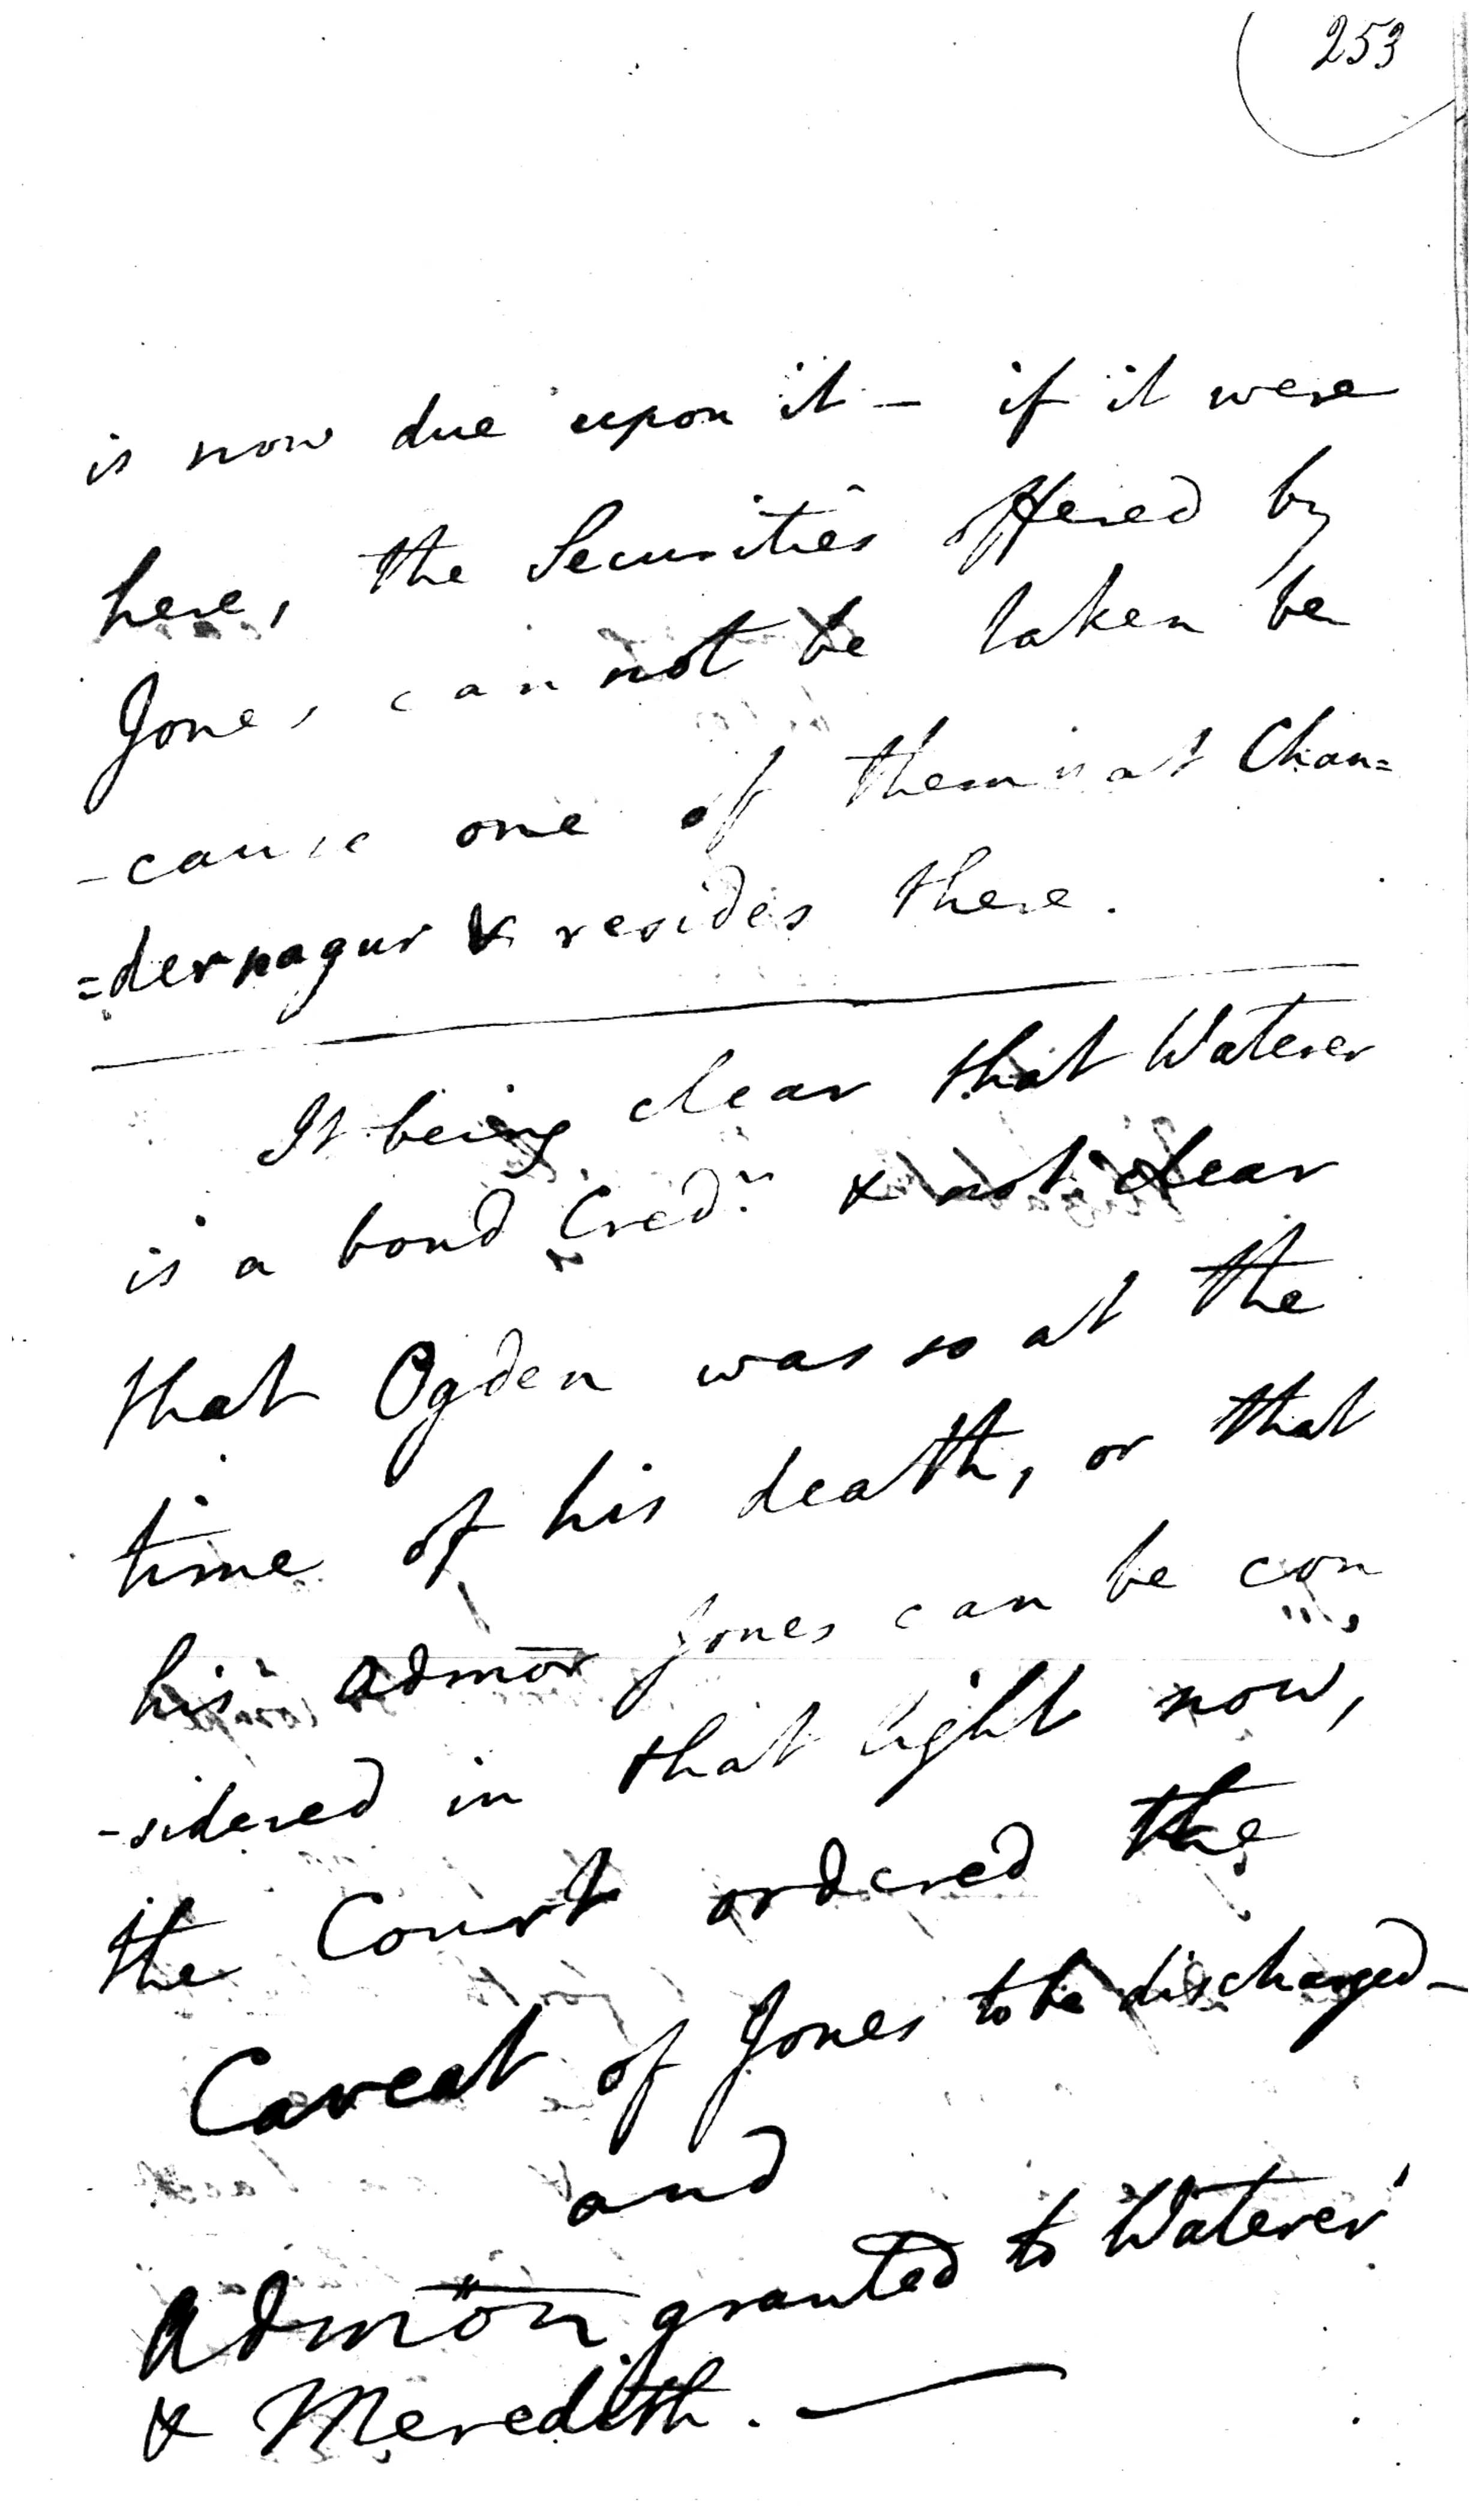 253
is now due upon it – if it were
here, the Securities offered by
Jones cannot be taken be
-cause one of them is at Chan=
=dernagur & resides there.
It being clear that Waterer
is a bond Credr. & not clear
that Ogden was so at the
time of his death, or that
his admor Jones can be con
-sidered in that light now,
the Court ordered the
Caveat of Jones to be discharged –
and
Admon granted to Waterer
& Meredith. —